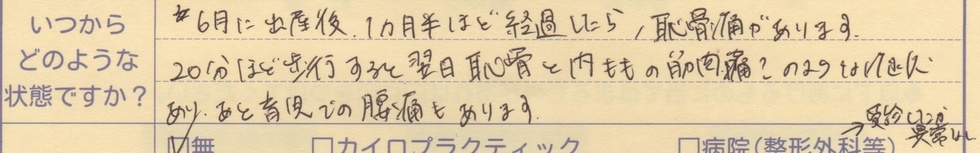 いつから
どのような
状態ですか?
*6月に出産後、1カ月半ほど経過したら、恥骨痛があります。
20分ほど歩行すると翌日恥骨と内ももの筋肉痛?のような
あり、あと育児での腰痛もあります。
→受診したが異常なし
☑無 □カイロプラクティック □病院(整形外科等)